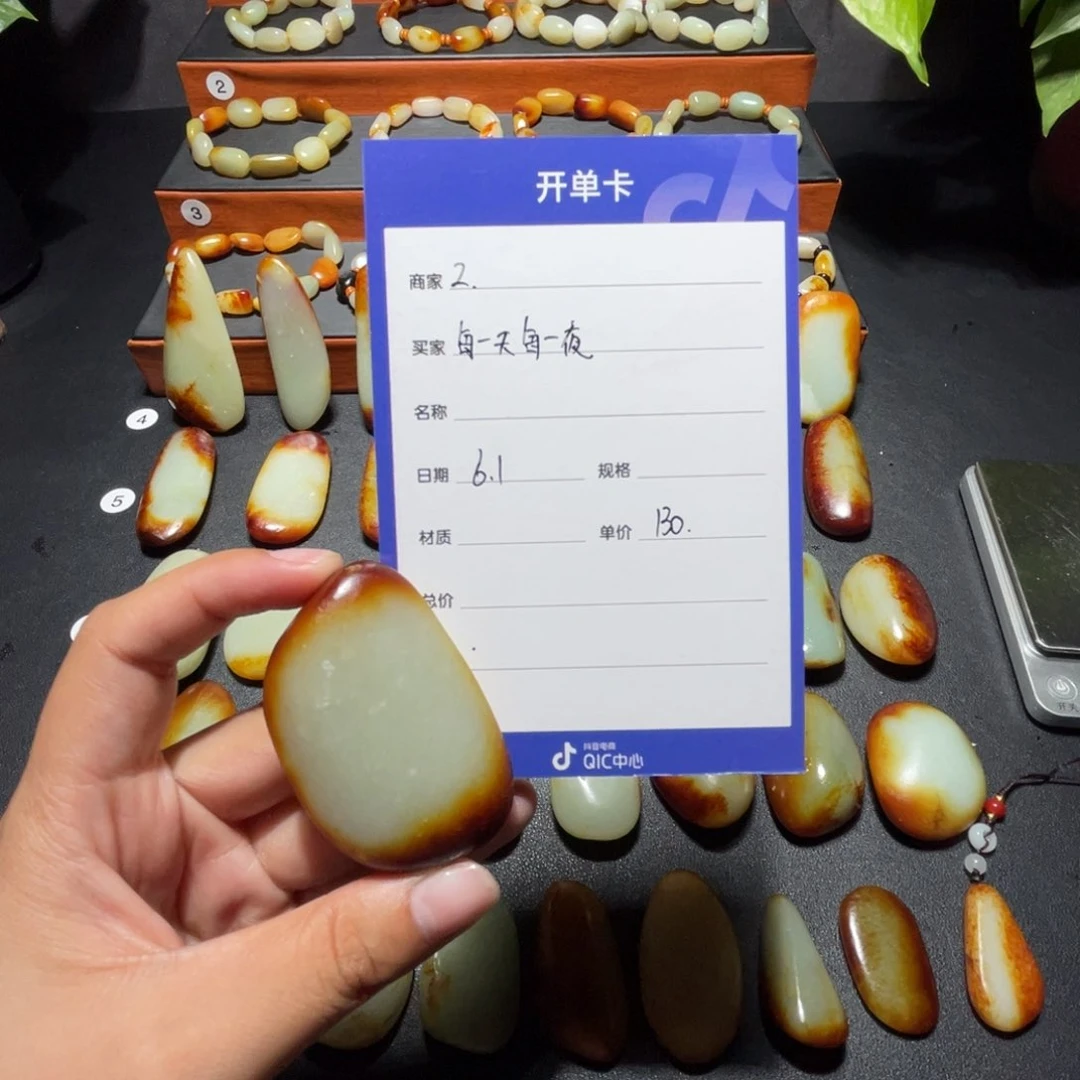 2
3
4
5
开单卡
商家 2.
买家 每一天每一夜
名称
日期 6.1 规格
材质 单价 130.
总价
抖音电商
QIC中心
开关